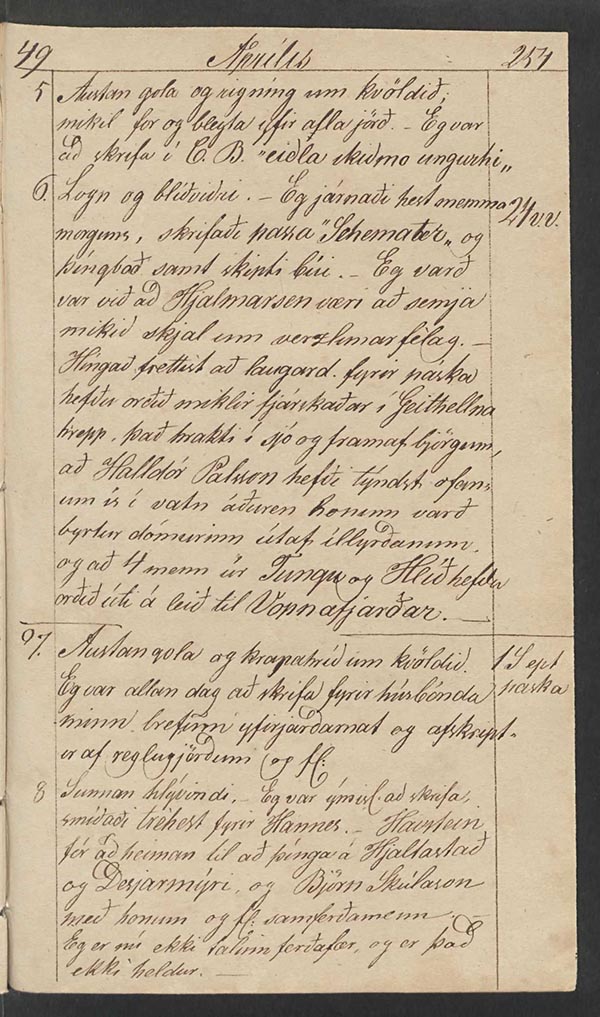 49 Aprílis 254
5 Austan gola og rigning um kvöldið;
mikil for og bleyta yfir alla jörð. - Eg var
að skrifa í C. B. "eidla skidmo ungurhi„
6. Logn og blíðviðri. - Eg járnaði hest snemma 24 v.v.
morguns, skrifaði passa "Schemater„ og
þingboð samt skipti búi. - Eg varð
var við að Hjalmarsen væri að semja
mikið skjal um verzlunarfélag. -
Hingað frettist að laugard. fyrir páska
hefðu orðið miklir fjárskaðar í Geithellna
hrepp, það hrakti í sjó og framaf björgum,
að Halldór Palsson hefði týndst ofan-
um ís í vatn áðuren honum varð
byrtur dómurinn útaf illyrðunum.
og að 4 menn úr Tungu og Hlíð hefðu
orðið úti á leið til Vopnafjarðar. -
7. Austangola og krapahríð um kvöldið. 1 S ept
Eg var allan dag að skrifa fyrir húsbónda páska
minn brefum yfirjarðamat og afskript-
ir af reglugjörðum og fl:
8 Sunnan hlývindi. - Eg var ýmisl. að skrifa,
smíðaði tréhest fyrir Hannes. - Havstein
fór að heiman til að þinga á Hjaltastað
og Desjarmýri, og Björn Skúlason
með honum og fl: samferðamenn. -
Eg er nú ekki talinn ferðafær, og er það
ekki heldur. -